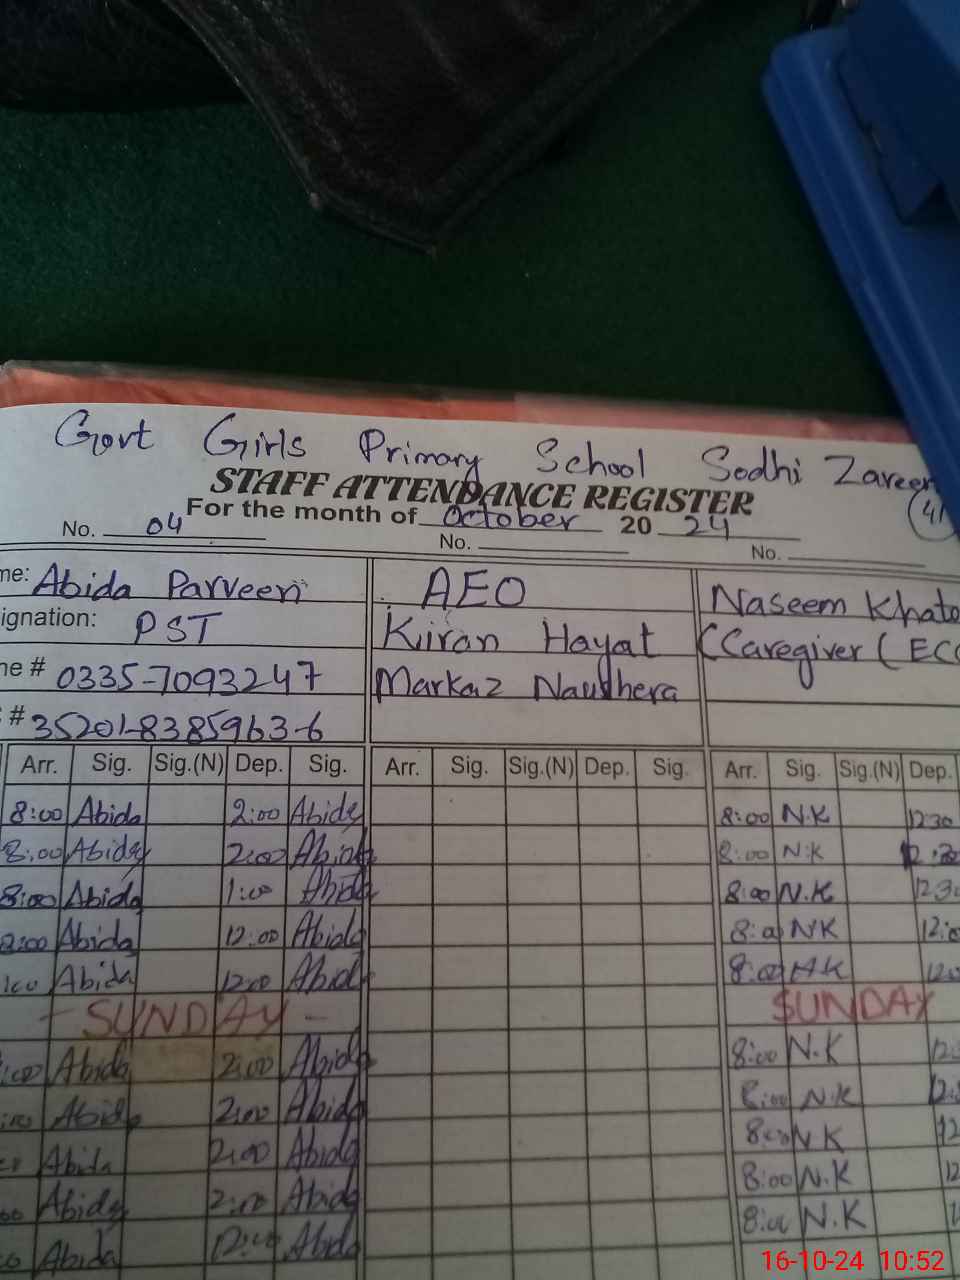 Govt Girls Primary School Sodhi Zareen
STAFF ATTENDANCE REGISTER
41
For the month of October 2024
No. 04 No. No.
me: Abida Parveen AEO Naseem Khato
signation: PST Kiran Hayat (Caregiver (ECC
ne # 0335-7093247 Markaz Naushera
# 35201-8385963-6
Arr. Sig. Sig.(N) Dep. Sig. Arr. Sig. Sig.(N) Dep. Sig. Arr. Sig. Sig.(N) Dep.
8:00 Abida 2:00 Abida 8:00 N.K 1230
8:00 Abida 2:00 Abida 8:00 N.K 12:30
8:00 Abida 1:00 Abida 8:00 N.K 123
8:00 Abida 12:00 Abida 8:00 NK 12:0
:00 Abida 12:00 Abida 8:00 N.K 120
- SUNDAY - SUNDAY
:00 Abida 2:00 Abida 8:00 N.K 12:
:00 Abida 2:00 Abida 8:00 N.K 12:
Abida 2:00 Abida 8:00 N K 12
00 Abida 2:00 Abida 8:00 N.K 12
Abida 12:00 Abida 8:00 N.K
16-10-24 10:52